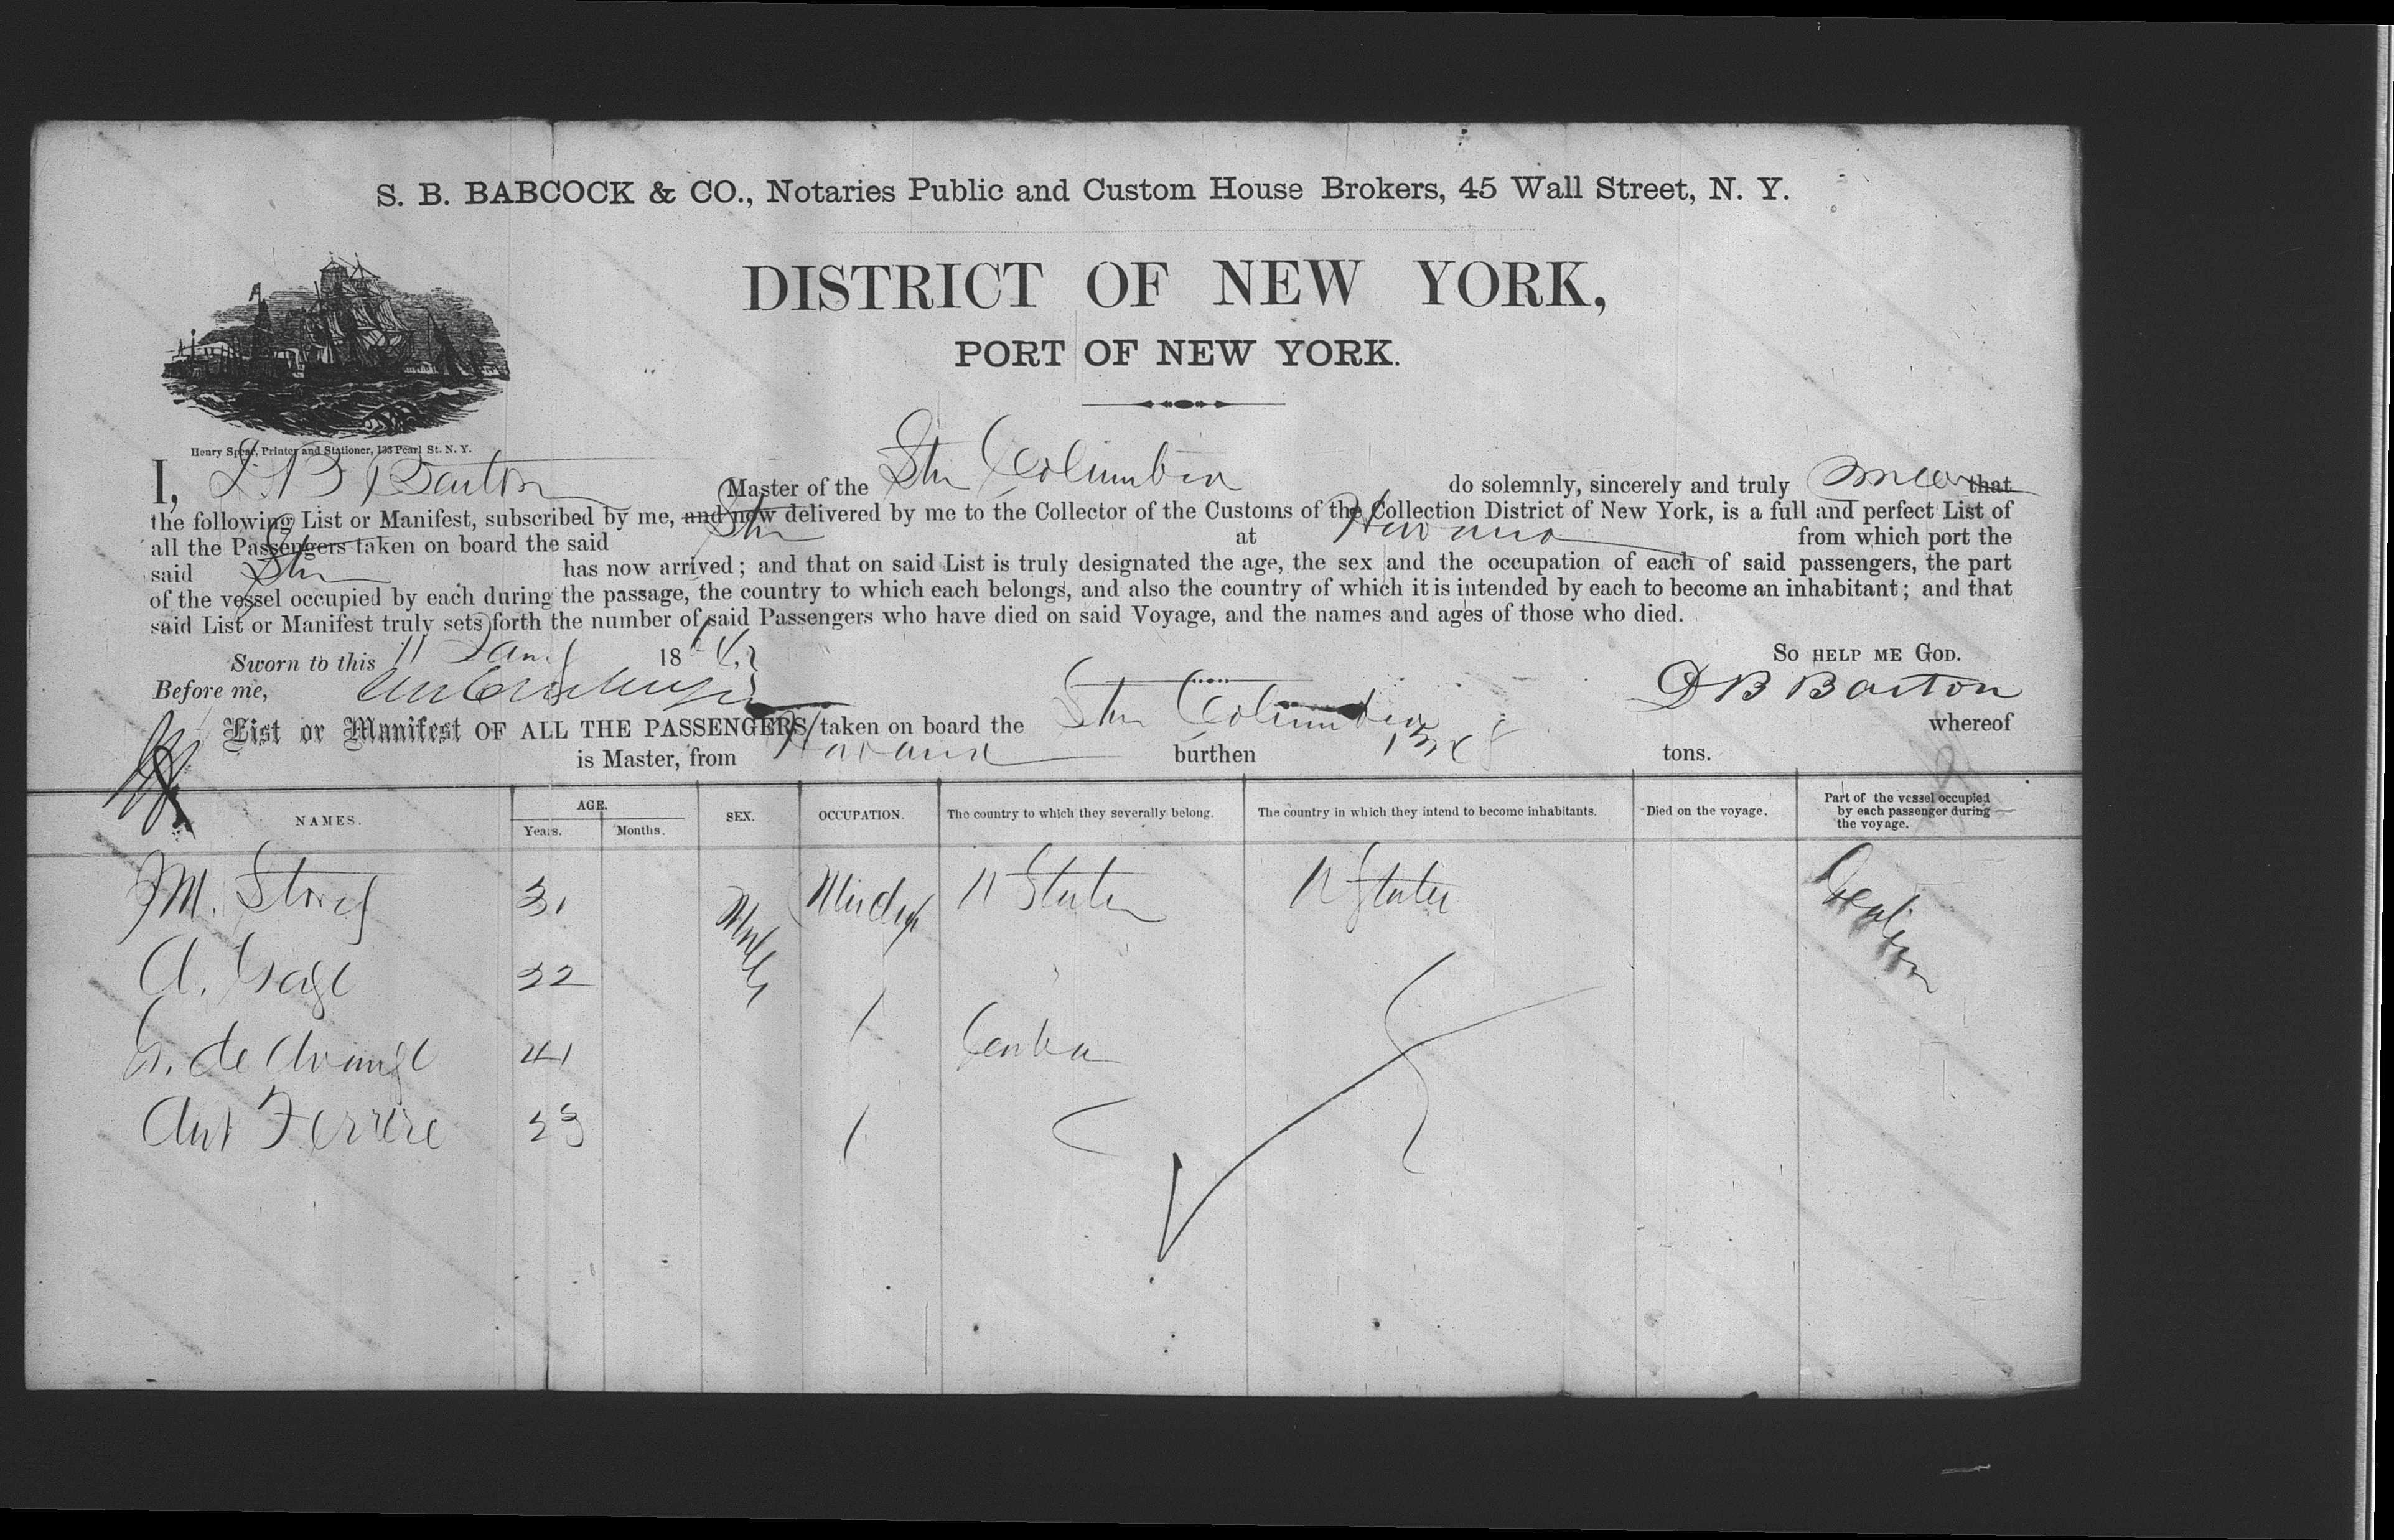 S. B. BABCOCK & CO., Notaries Public and Custom House Brokers, 45 Wall Street, N. Y.
DISTRICT OF NEW YORK,
PORT OF NEW YORK.
Henry Spear, Printer and Stationer, 133 Pearl St. N. Y.
I, D B Barton Master of the Str Columbia do solemnly, sincerely and truly swear that
the following List or Manifest, subscribed by me, and now delivered by me to the Collector of the Customs of the Collection District of New York, is a full and perfect List of
all the Passengers taken on board the said Str at Havana from which port the
said Str has now arrived; and that on said List is truly designated the age, the sex and the occupation of each of said passengers, the part
of the vessel occupied by each during the passage, the country to which each belongs, and also the country of which it is intended by each to become an inhabitant; and that
said List or Manifest truly sets forth the number of said Passengers who have died on said Voyage, and the names and ages of those who died.
Sworn to this 11 Jany 18 SO HELP ME GOD.
Before me, D B Barton
List or Manifest OF ALL THE PASSENGERS taken on board the Str Columbia whereof
is Master, from Havana burthen tons.
NAMES. AGE. Years. Months. SEX. OCCUPATION. The country to which they severally belong. The country in which they intend to become inhabitants. Died on the voyage. Part of the vessel occupied by each passenger during the voyage.
M. Storey 31 Males U States U States
A. Gage 32
G. de 41 Cuba
Ant Ferrere